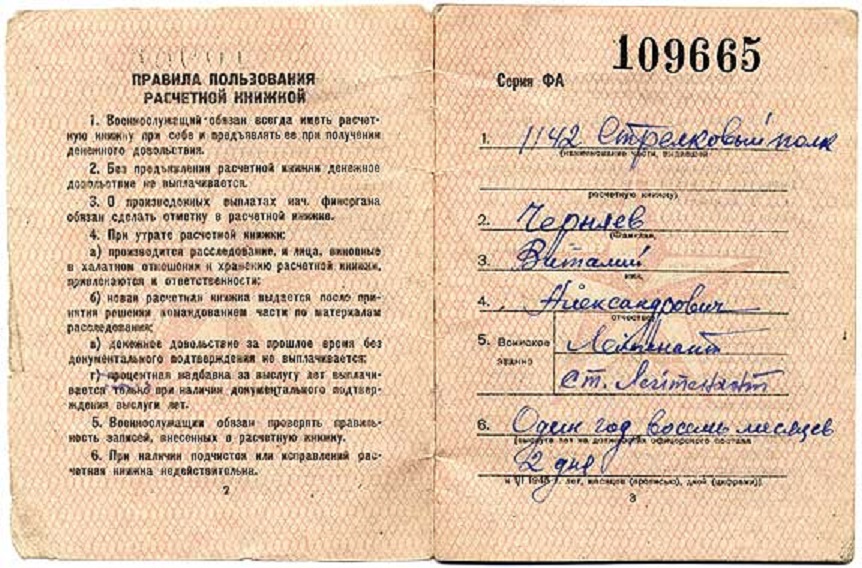 ПРАВИЛА ПОЛЬЗОВАНИЯ
РАСЧЕТНОЙ КНИЖКОЙ
1. Военнослужащий обязан всегда иметь расчет-
ную книжку при себе и предъявлять ее при получении
денежного довольствия.
2. Без предъявления расчетной книжки денежное
довольствие не выплачивается.
3. О произведенных выплатах нач. финоргана
обязан сделать отметку в расчетной книжке.
4. При утрате расчетной книжки:
а) производится расследование, и лица, виновные
в халатном отношении к хранению расчетной книжки,
привлекаются к ответственности;
б) новая расчетная книжка выдается после при-
нятия решения командованием части по материалам
расследования;
в) денежное довольствие за прошлое время без
документального подтверждения не выплачивается;
г) процентная надбавка за выслугу лет выплачи-
вается только при наличии документального подтвер-
ждения выслуги лет.
5. Военнослужащий обязан проверять правиль-
ность записей, внесенных в расчетную книжку.
6. При наличии подчисток или исправлений рас-
четная книжка недействительна.
2
Серия ФА 109665
1. 1142 Стрелковый полк
(наименование части, выдавшей
расчетную книжку)
2. Черняев
(фамилия,
3. Виталий
имя,
4. Александрович
отчество)
5. Воинское звание
Лейтенант
ст. Лейтенант
6. Один год восемь месяцев
(выслуга лет на должностях офицерского состава
2 дня
к VI 1946 г. лет, месяцев (прописью), дней (цифрами))
3